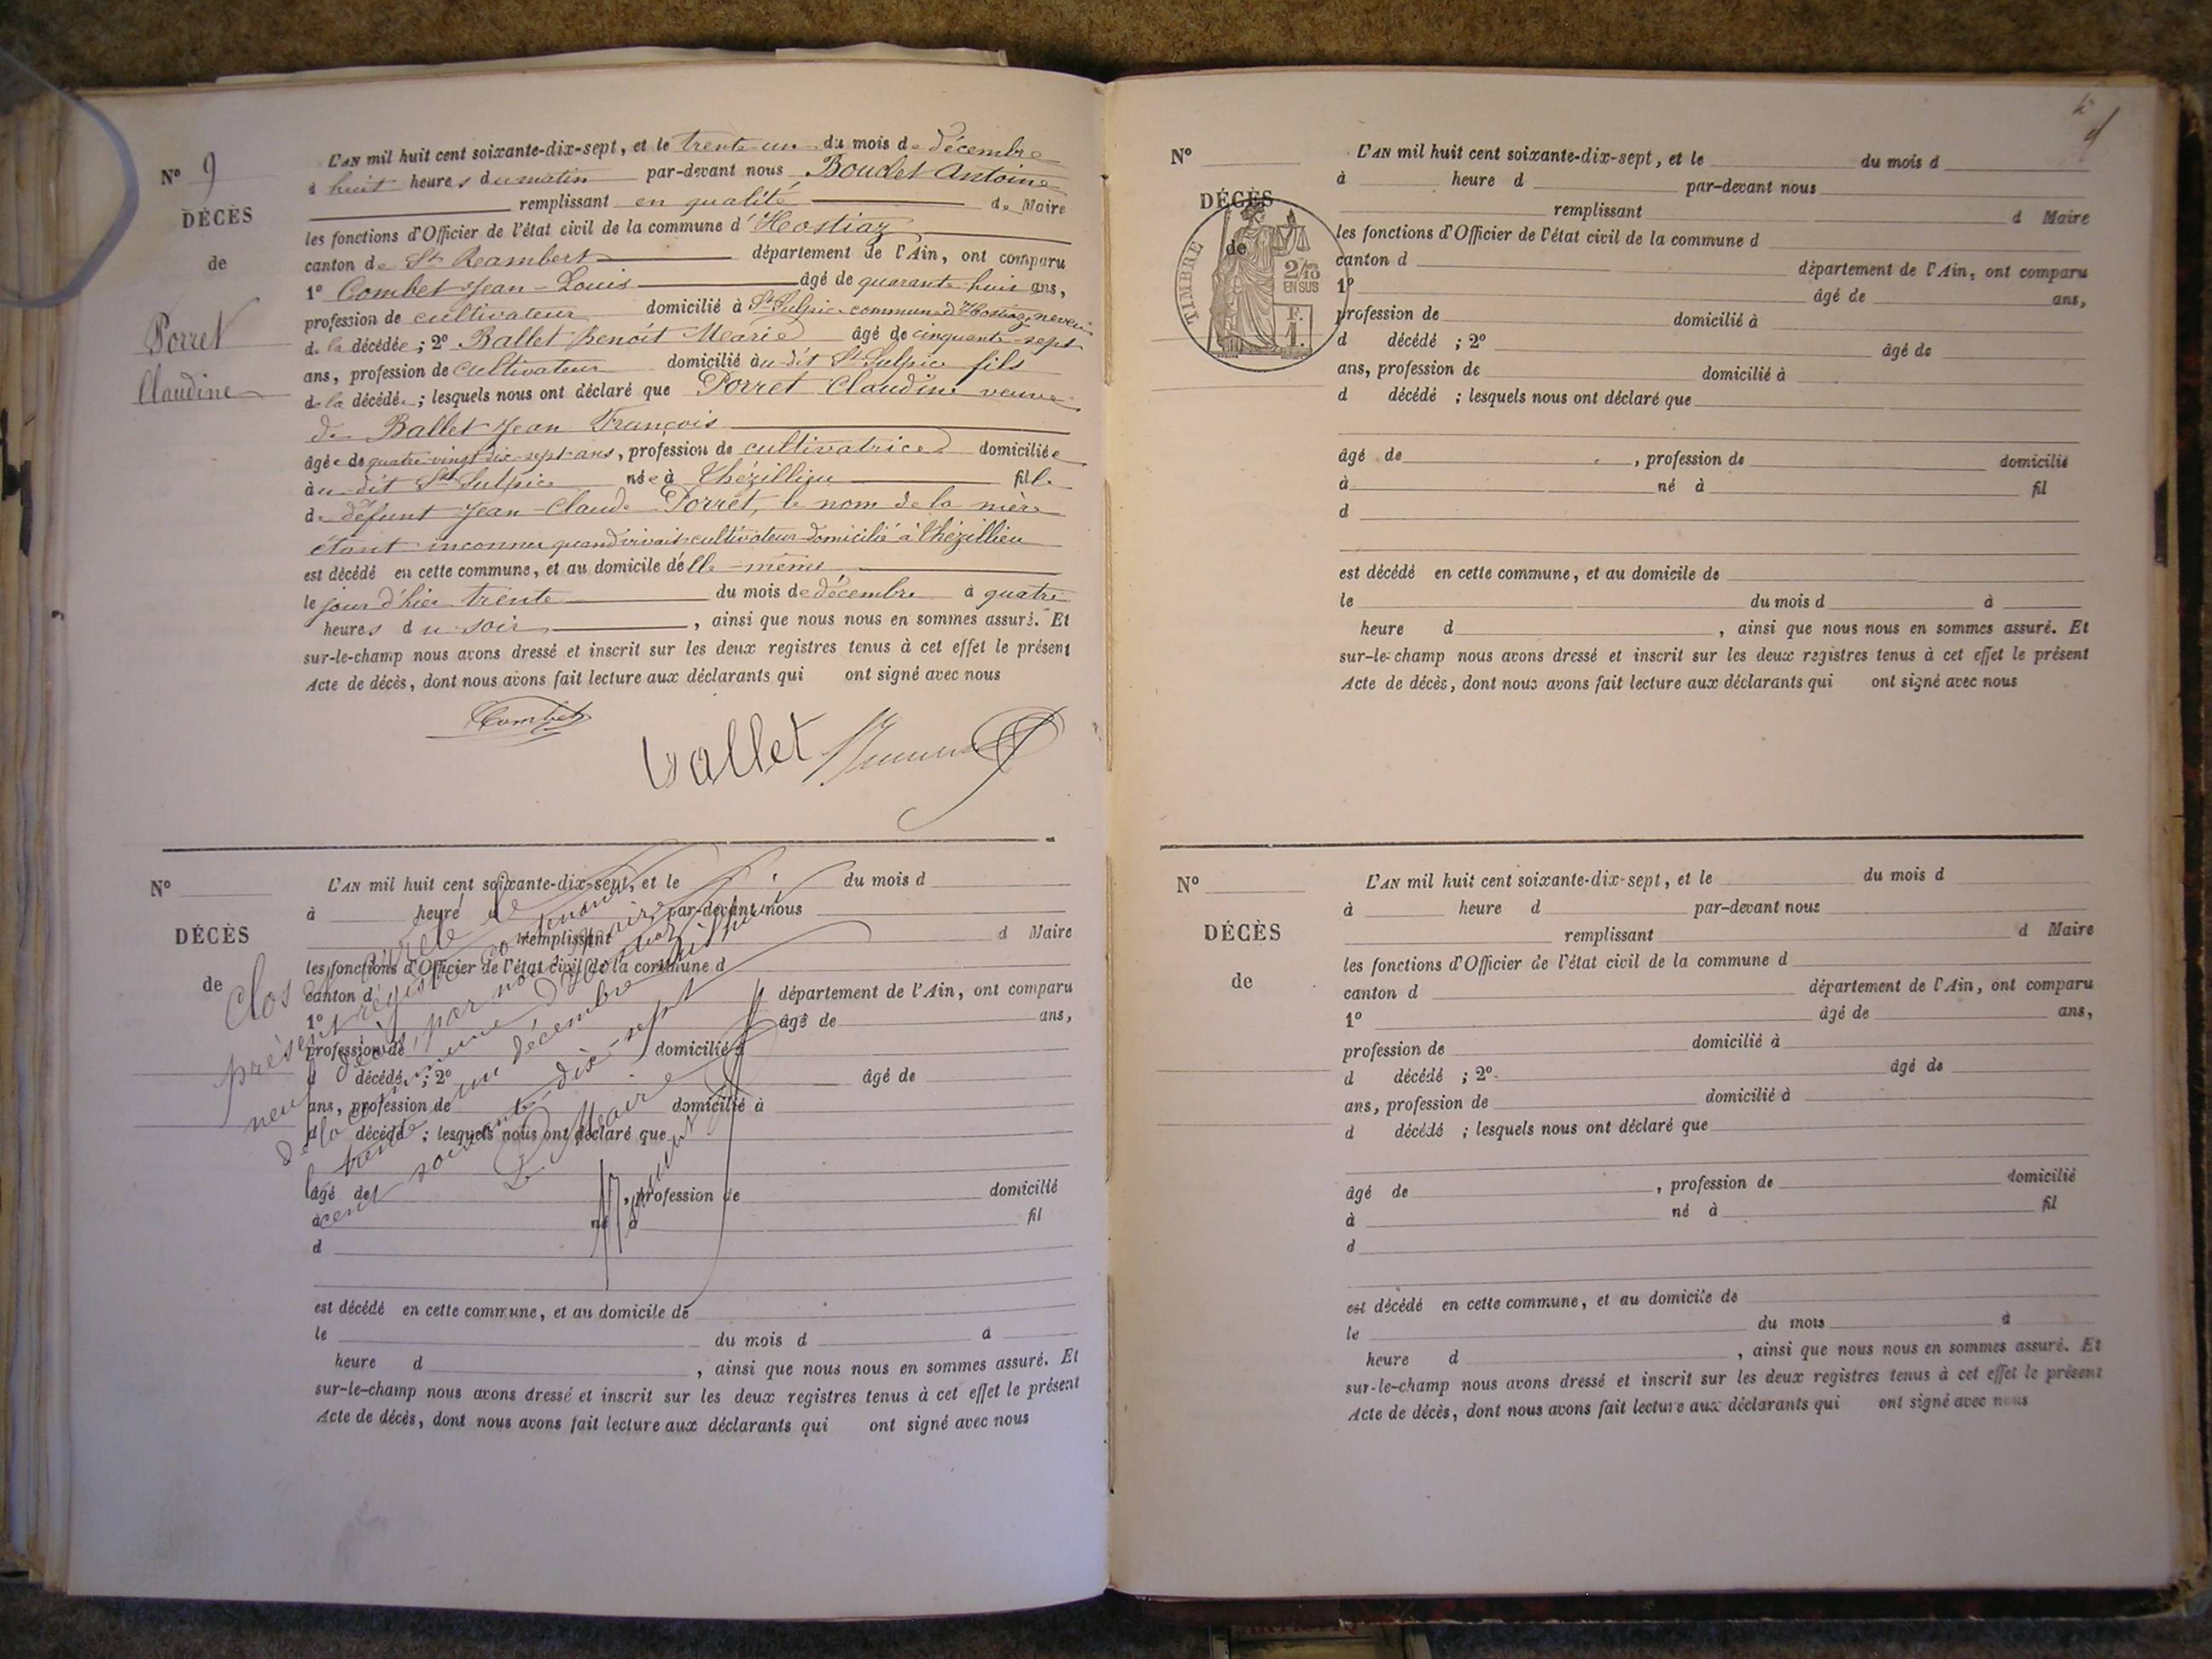 Nº 9
DÉCÈS
de
Porret
Claudine
L'AN mil huit cent soixante-dix-sept, et le trente-un du mois de décembre
à huit heures du matin par-devant nous Boudet Antoine
remplissant en qualité de Maire
les fonctions d'Officier de l'état civil de la commune d'Hostiaz
canton de St Rambert département de l'Ain, ont comparu
1º Combet Jean-Louis âgé de quarante huit ans,
profession de cultivateur domicilié à St Sulpice commune d'Hostiaz, neveu
de la décédée ; 2º Ballet Benoît Marie âgé de cinquante-sept
ans, profession de cultivateur domicilié au dit St Sulpice fils
de la décédée ; lesquels nous ont déclaré que Porret Claudine veuve
de Ballet Jean François
âgée de quatre-vingt-dix-sept ans, profession de cultivatrice domiciliée
au dit St Sulpice née à Thézillieu fille
de défunt Jean-Claude Porret, le nom de la mère
étant inconnu quand vivait cultivateur domicilié à Thézillieu
est décédé en cette commune, et au domicile d'elle-même
le jour d'hier trente du mois de décembre à quatre
heures du soir, ainsi que nous nous en sommes assuré. Et
sur-le-champ nous avons dressé et inscrit sur les deux registres tenus à cet effet le présent
Acte de décès, dont nous avons fait lecture aux déclarants qui ont signé avec nous
Combet
Ballet
Nº
DÉCÈS
de
L'AN mil huit cent soixante-dix-sept, et le du mois d
à heure d par-devant nous
remplissant d Maire
les fonctions d'Officier de l'état civil de la commune d
canton d département de l'Ain, ont comparu
1º âgé de ans,
profession de domicilié à
d décédé ; 2º âgé de
ans, profession de domicilié à
d décédé ; lesquels nous ont déclaré que
âgé de , profession de domicilié
à né à fil
d
est décédé en cette commune, et au domicile de
le du mois d à
heure d , ainsi que nous nous en sommes assuré. Et
sur-le-champ nous avons dressé et inscrit sur les deux registres tenus à cet effet le présent
Acte de décès, dont nous avons fait lecture aux déclarants qui ont signé avec nous
Clos et arrêté le
présent registre contenant
neuf décès, par nous Maire
de la commune d'Hostiaz
le trente un décembre mil huit
cent soixante-dix-sept
Le Maire
Nº
DÉCÈS
de
TIMBRE
2/10
EN SUS
F.
1.
L'AN mil huit cent soixante-dix-sept, et le du mois d
à heure d par-devant nous
remplissant d Maire
les fonctions d'Officier de l'état civil de la commune d
canton d département de l'Ain, ont comparu
1º âgé de ans,
profession de domicilié à
d décédé ; 2º âgé de
ans, profession de domicilié à
d décédé ; lesquels nous ont déclaré que
âgé de , profession de domicilié
à né à fil
d
est décédé en cette commune, et au domicile de
le du mois d à
heure d , ainsi que nous nous en sommes assuré. Et
sur-le-champ nous avons dressé et inscrit sur les deux registres tenus à cet effet le présent
Acte de décès, dont nous avons fait lecture aux déclarants qui ont signé avec nous
Nº
DÉCÈS
de
L'AN mil huit cent soixante-dix-sept, et le du mois d
à heure d par-devant nous
remplissant d Maire
les fonctions d'Officier de l'état civil de la commune d
canton d département de l'Ain, ont comparu
1º âgé de ans,
profession de domicilié à
d décédé ; 2º âgé de
ans, profession de domicilié à
d décédé ; lesquels nous ont déclaré que
âgé de , profession de domicilié
à né à fil
d
est décédé en cette commune, et au domicile de
le du mois à
heure d , ainsi que nous nous en sommes assuré. Et
sur-le-champ nous avons dressé et inscrit sur les deux registres tenus à cet effet le présent
Acte de décès, dont nous avons fait lecture aux déclarants qui ont signé avec nous